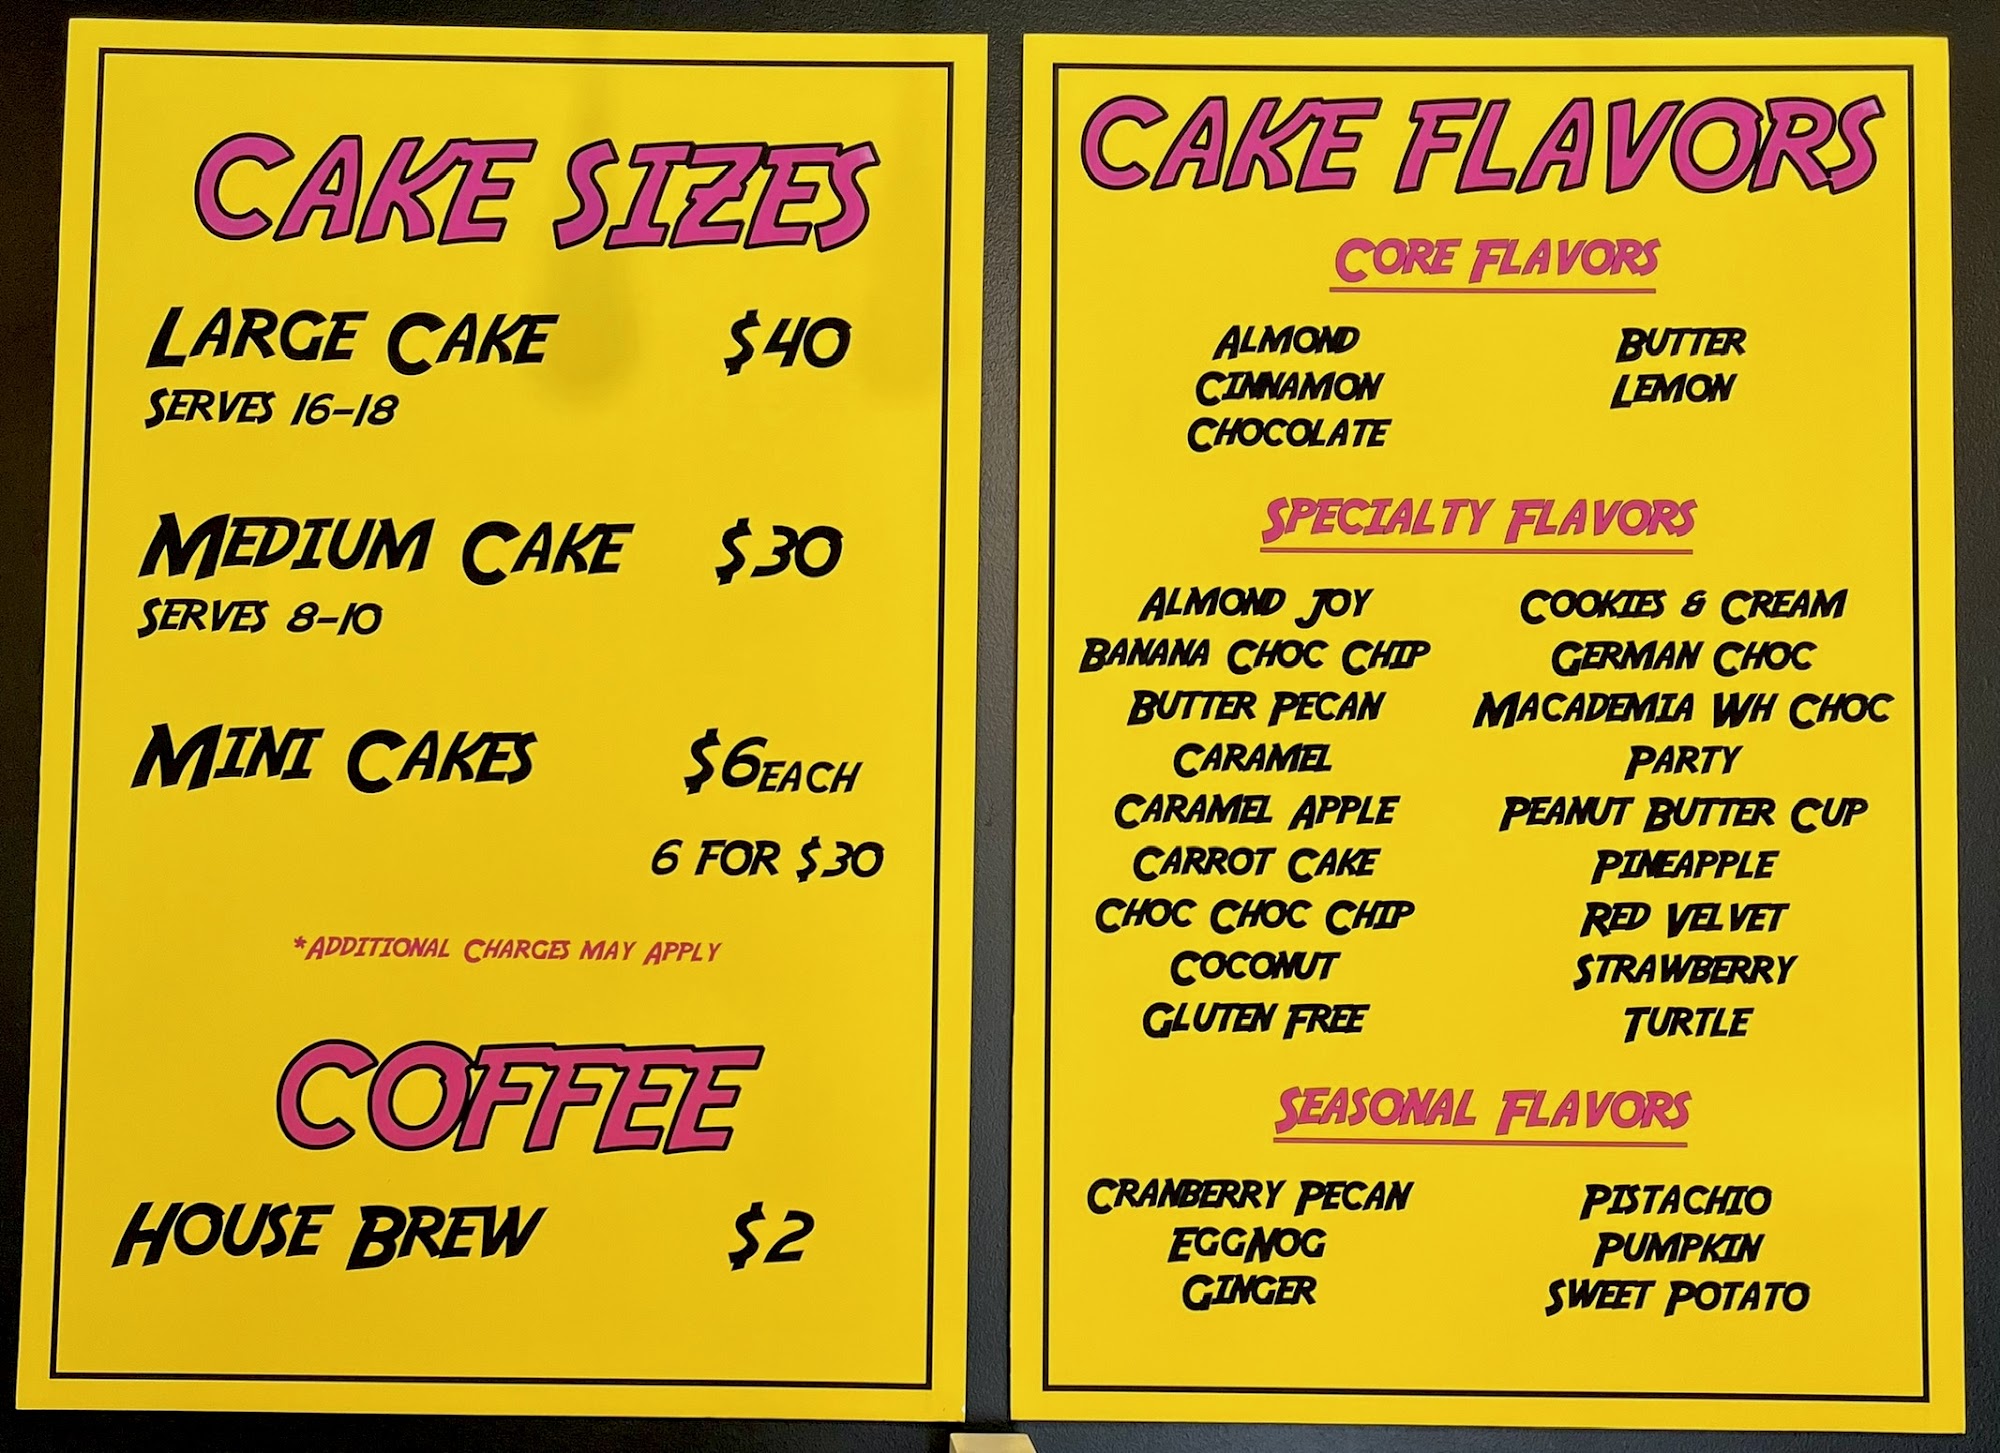 CAKE SIZES
LARGE CAKE $40
SERVES 16-18
MEDIUM CAKE $30
SERVES 8-10
MINI CAKES $6 EACH
6 FOR $30
*ADDITIONAL CHARGES MAY APPLY
COFFEE
HOUSE BREW $2
CAKE FLAVORS
CORE FLAVORS
ALMOND BUTTER
CINNAMON LEMON
CHOCOLATE
SPECIALTY FLAVORS
ALMOND JOY COOKIES & CREAM
BANANA CHOC CHIP GERMAN CHOC
BUTTER PECAN MACADEMIA WH CHOC
CARAMEL PARTY
CARAMEL APPLE PEANUT BUTTER CUP
CARROT CAKE PINEAPPLE
CHOC CHOC CHIP RED VELVET
COCONUT STRAWBERRY
GLUTEN FREE TURTLE
SEASONAL FLAVORS
CRANBERRY PECAN PISTACHIO
EGGNOG PUMPKIN
GINGER SWEET POTATO